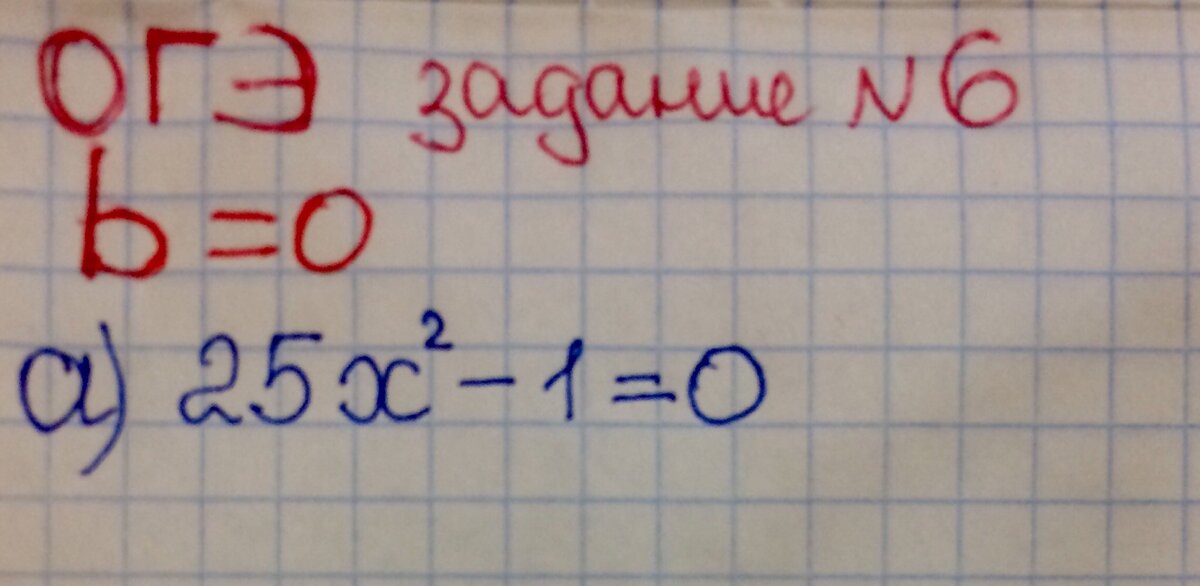 ОГЭ задание №6
b=0
а) 25x²-1=0